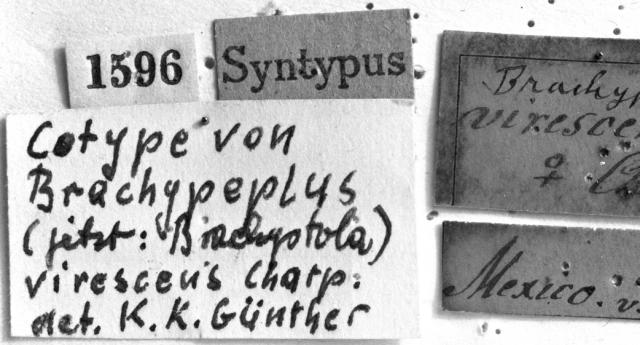 1596
Syntypus
Cotype von
Brachypeplus
(jetzt: Brachyptola)
virescens Charp.
det. K. K. Günther
Brachyp
viresce
♀
Mexico.